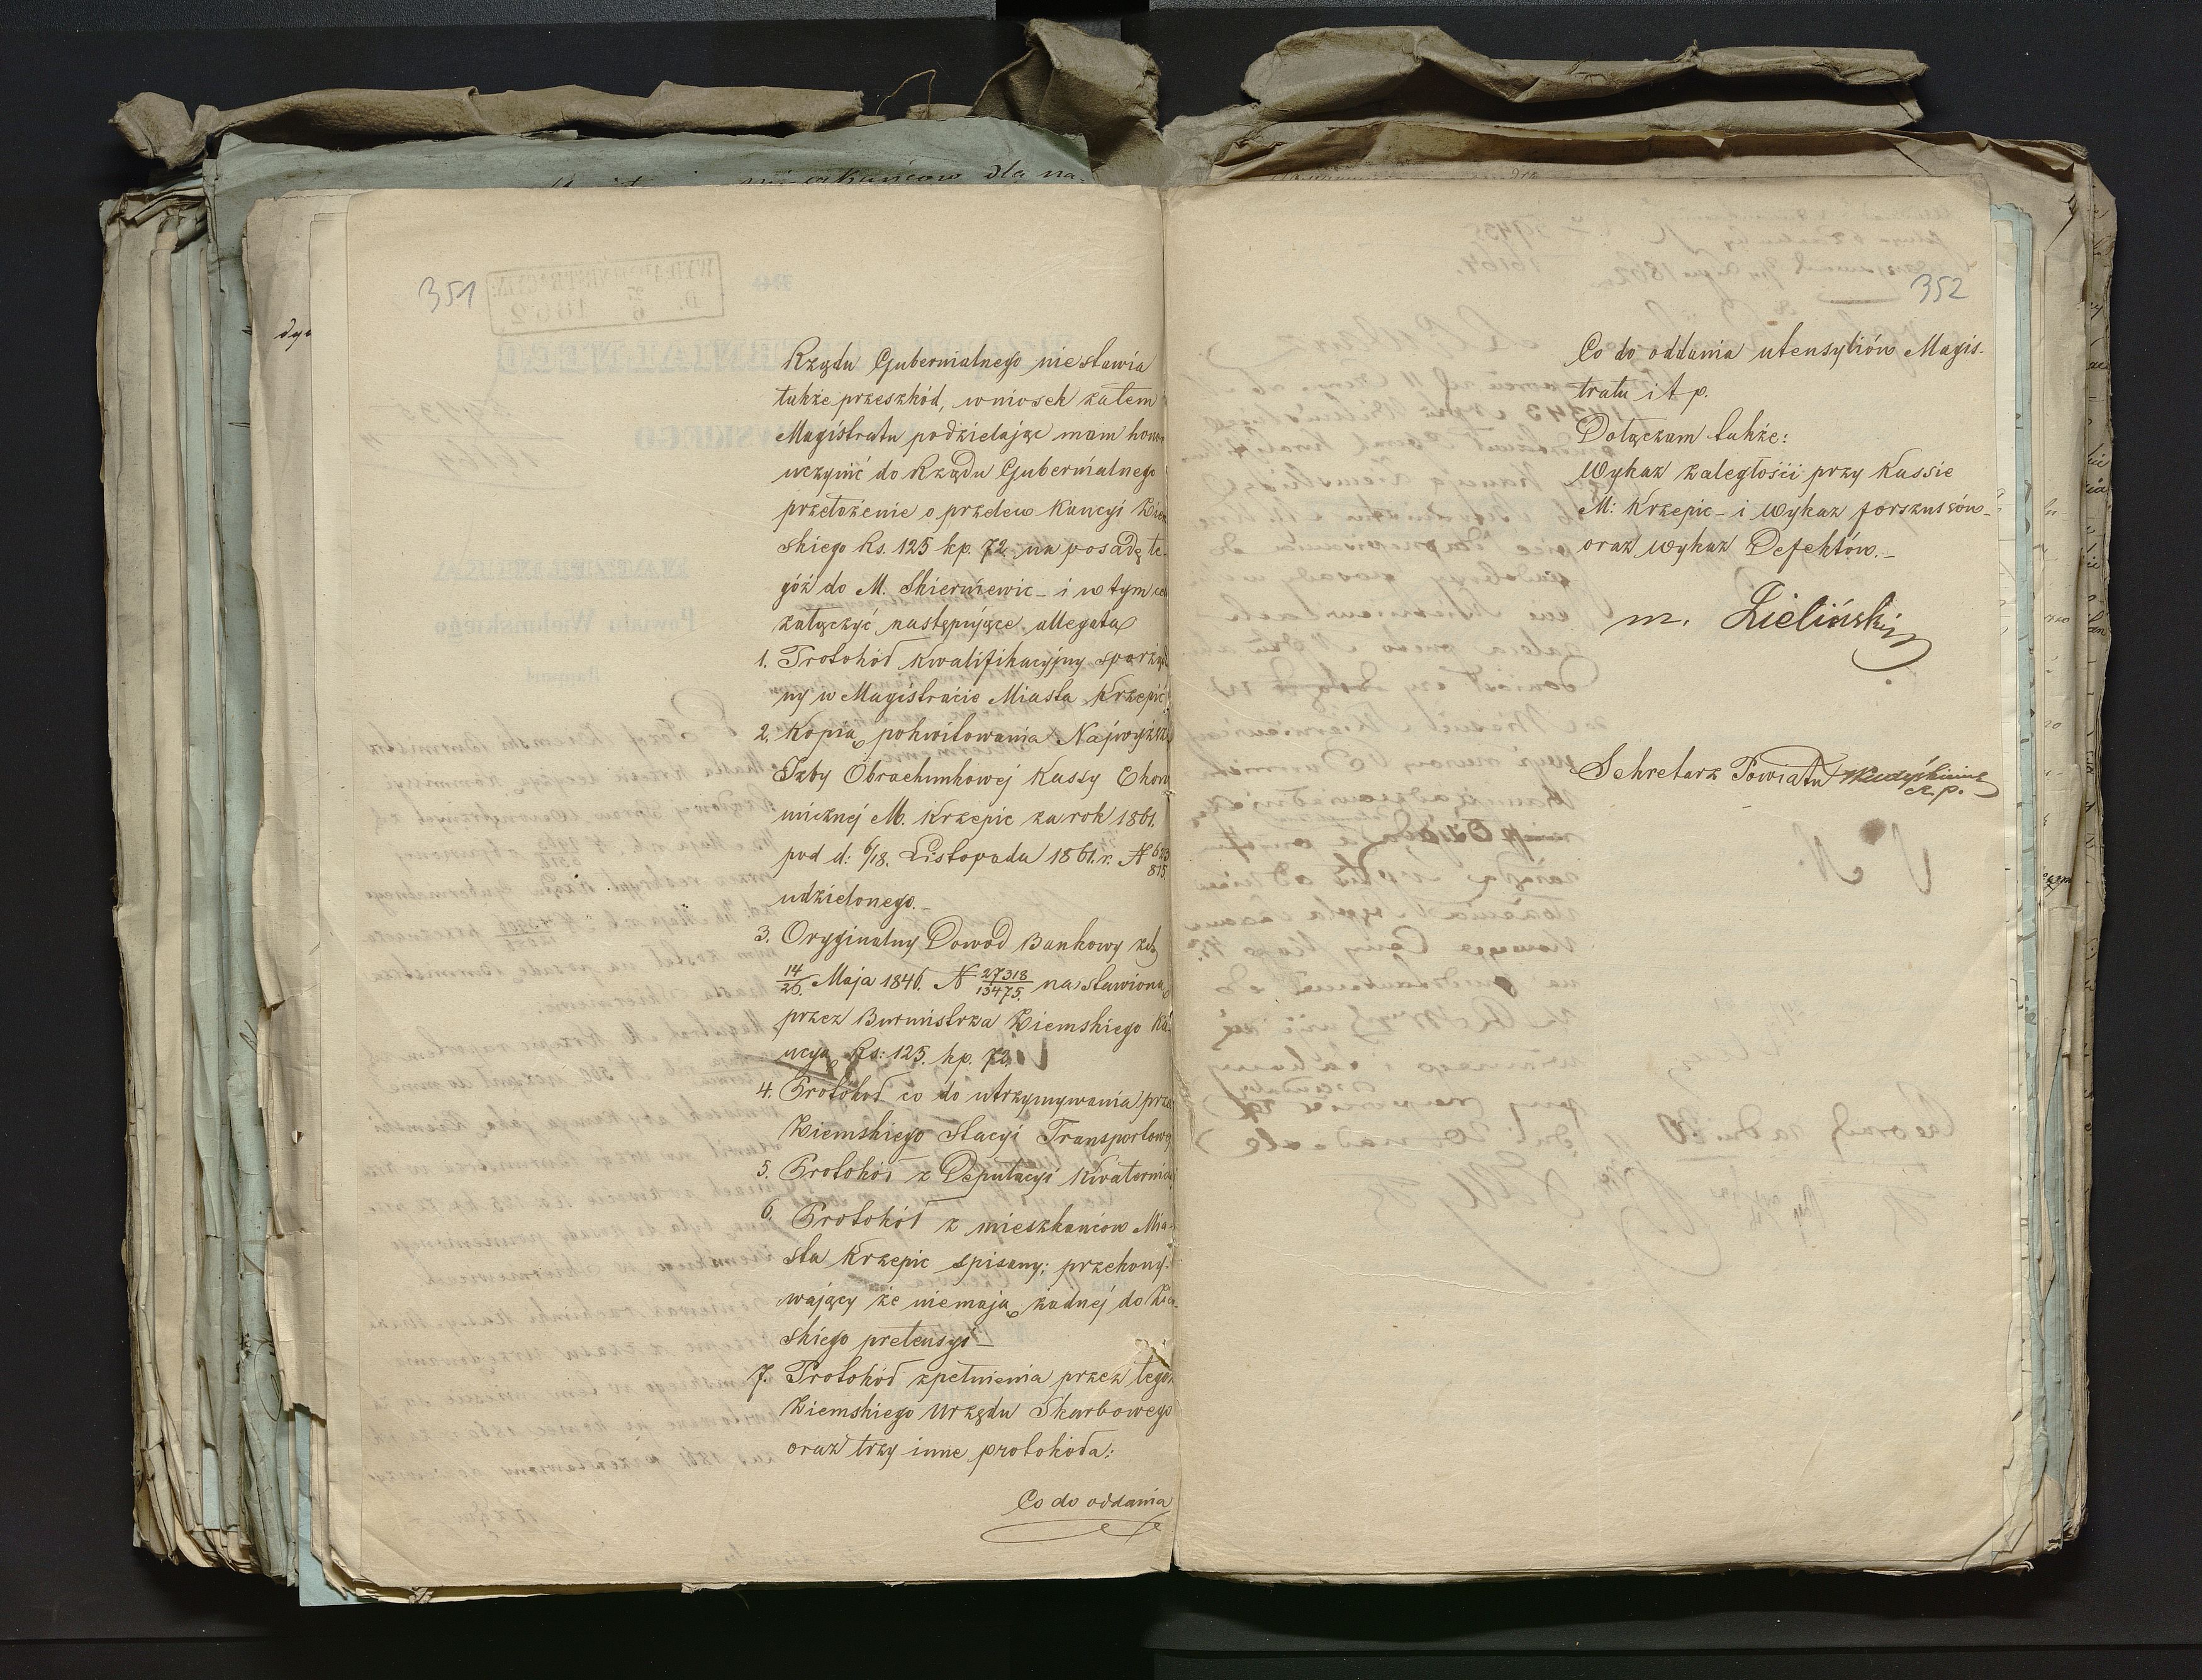 351
Rządu Gubernialnego niestawia
także przeszkód, wniosek zatem
Magistratu podzielając mam honor
uczynić do Rządu Gubernialnego
przełożenie o przelew Kaucyi Ziem
skiego Rs. 125 kp. 72. na posadę te-
góż do M. Skierniewic – i w tym celu
załączyć następujące allegata
1. Protokół kwalifikacyjny sporząd
ny w Magistracie Miasta Krzepic
2. Kopia pokwitowania Najwyższej
Izby Obrachunkowej Kassy Ekono
micznej M. Krzepic za rok 1861.
pod d: 6/18. Listopada 1861. r. N 623/815
udzielonego.–
3. Oryginalny Dowod Bankowy z d
14/26. Maja 1846. N 27318/13475. na stawioną
przez Burmistrza Ziemskiego Ka-
ucyą Rs: 125. kp. 72.
4. Protokół co do utrzymywania prze
Ziemskiego Stacyi Transportowej
5. Protokół z Deputacyi Kwaterniczej
6. Protokół z mieszkańcow Mia-
sta Krzepic spisany; przekony-
wający że niemają żadnej do Ziem-
skiego pretensyi –
7. Protokół zpełnienia przez tegoż
Ziemskiego Urzędu Skarbowego
oraz trzy inne protokóła:
Co do oddania
352
Co do oddania utensyliów Magis-
tratu i t p.
Dołączam także:
Wykaz zaległości przy Kassie
M: Krzepic – i Wykaz forszusów –
oraz Wykaz Defektów.–
m. Zieliński
Sekretarz Powiatu